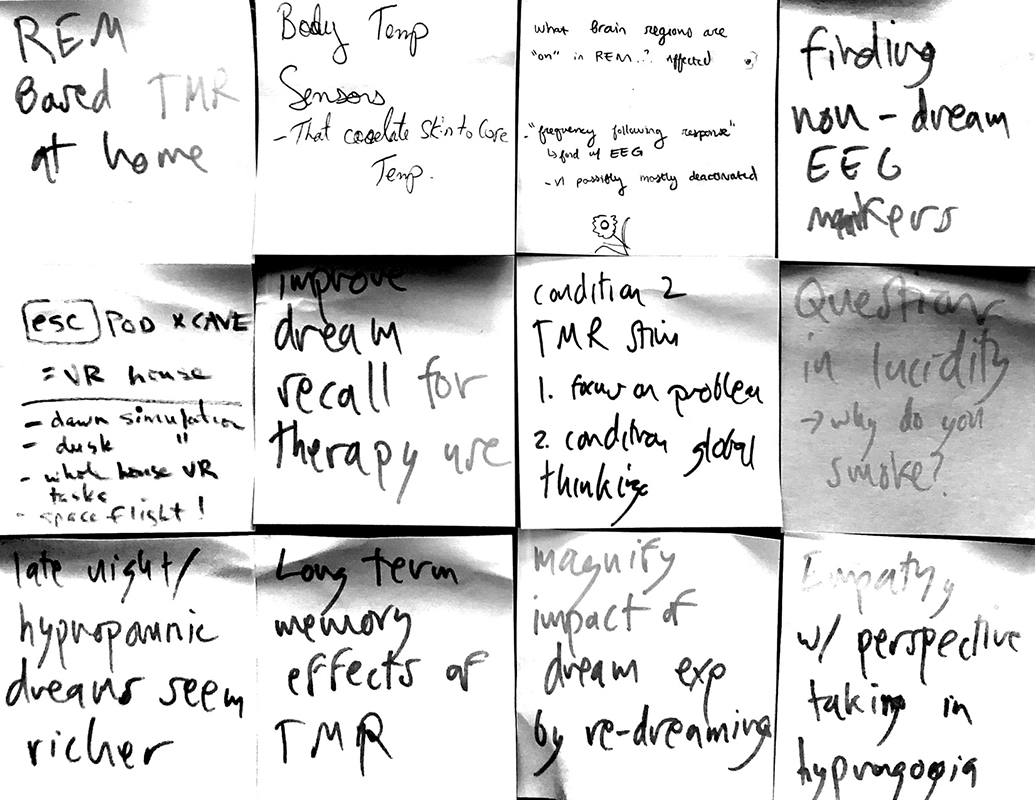 REM
Based TMR
at home
Body Temp
Sensors
- That coorelate Skin to Core
Temp.
what brain regions are
"on" in REM..? Affected
- "frequency following response"
↳ find w/ EEG
- VI possibly mostly deactivated
finding
non-dream
EEG
markers
esc POD X CAVE
= VR house
- dawn simulation
- dusk "
- whole house VR
tasks
- space flight!
improve
dream
recall for
therapy use
condition 2
TMR stim
1. focus on problem
2. condition global
thinking
Questions
in lucidity
→ why do you
smoke?
late night/
hypnopomnic
dreams seem
richer
Long term
memory
effects of
TMR
magnify
impact of
dream exp
by re-dreaming
Empathy
w/ perspective
taking in
hypnagogia